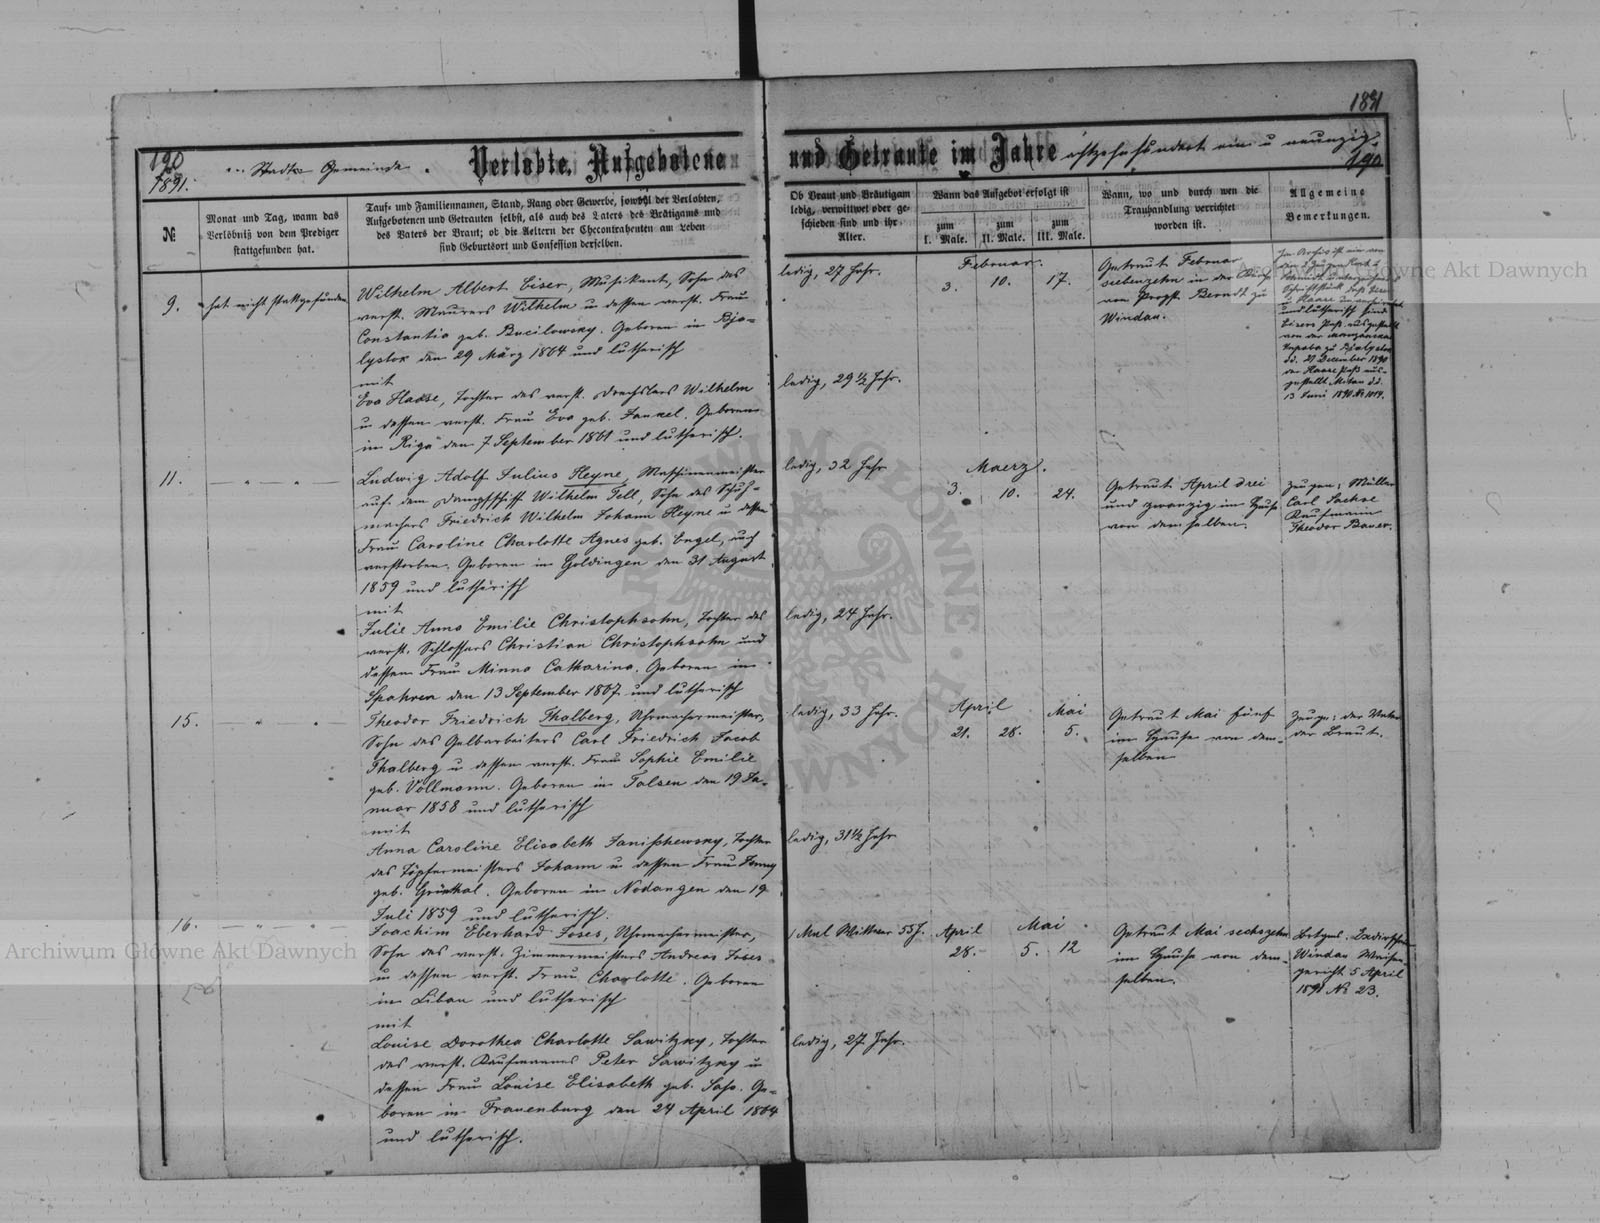 1891
190
1891.
Stadt Gemeinde.
Verlobte, Aufgebotene
und Getraute im Jahre
achtzehnhundert ein u neunzig.
190
№
Monat und Tag, wann das
Verlöbniß von dem Prediger
stattgefunden hat.
Tauf- und Familiennamen, Stand, Rang oder Gewerbe, sowohl der Verlobten,
Aufgebotenen und Getrauten selbst, als auch des Vaters des Bräutigams und
des Vaters der Braut; ob die Aeltern der Ehecontrahenten am Leben
sind Geburtsort und Confession derselben.
Ob Braut und Bräutigam
ledig, verwittwet oder ge-
schieden sind und ihr
Alter.
Wann das Aufgebot erfolgt ist
zum
I. Male.
zum
II. Male.
zum
III. Male.
Wann, wo und durch wen die
Trauhandlung verrichtet
worden ist.
Allgemeine
Bemerkungen.
9.
hat nicht stattgefunden
Wilhelm Albert Eiser, Musikant, Sohn des
verst. Maurers Wilhelm u dessen verst. Frau
Constantia geb. Bucilowsky. Geboren in Bja-
lystok den 29 März 1864 und lutherisch
mit
Eva Haase, Tochter des verst. Drechslers Wilhelm
u dessen verst. Frau Eva geb. Jankel. Geboren
in Riga den 7 September 1861 und lutherisch.
ledig, 27 Jahr.
ledig, 29 1/2 Jahr.
Februar.
3. 10. 17.
Getraut Februar
siebenzehn in der Kirche
von Propst Berndt zu
Windau.
und lutherisch sind
Eisers Paß ausgestellt
von der
zu Bjalystok
dd. 21 December 1890
der Haase Paß aus-
gestellt Mitau dd.
13 Juni 1890 № 1019.
11.
Ludwig Adolf Julius Heyne, Maschinenmeister
auf dem Dampfschiff Wilhelm Tell, Sohn des Schuh-
machers Friedrich Wilhelm Johann Heyne u dessen
Frau Caroline Charlotte Agnes geb. Engel, auch
verstorben. Geboren in Goldingen den 31 August
1859 und lutherisch
mit
Julie Anna Emilie Christophsohn, Tochter des
verst. Schlossers Christian Christophsohn und
dessen Frau Minna Catharina. Geboren in
Spahren den 13 September 1867 und lutherisch
ledig, 32 Jahr
ledig, 24 Jahr.
Maerz.
3. 10. 24.
Getraut April drei
und zwanzig im Hause
von demselben.
Zeugen: Müller
Carl Sachse
Kaufmann
Theodor Bauer.
15.
Theodor Friedrich Thalberg, Uhrmachermeister,
Sohn des Gelbarbeiters Carl Friedrich Jacob
Thalberg u dessen verst. Frau Sophie Emilie
geb. Vollmann. Geboren in Talsen den 19 Ja-
nuar 1858 und lutherisch
mit
Anna Caroline Elisabeth Janischewsky, Tochter
des Töpfermeisters Johann u dessen Frau Jenny
geb. Grünthal. Geboren in Nodangen den 19
Juli 1859 und lutherisch.
ledig, 33 Jahr.
ledig, 31 1/2 Jahr
April Mai
21. 28. 5.
Getraut Mai fünf
im Hause von dem-
selben
Zeuge: der Vater
der Braut.
16.
Joachim Eberhard Joses, Uhrmachermeister,
Sohn des verst. Zimmermeisters Andreas Joses
u dessen verst. Frau Charlotte. Geboren
in Libau und lutherisch
mit
Louise Dorothea Charlotte Sawitzky, Tochter
des verst. Kaufmannes Peter Sawitzky u
dessen Frau Louise Elisabeth geb. Sass. Ge-
boren in Frauenburg den 24 April 1864
und lutherisch.
1 Mal Wittwer 55 J.
ledig, 27 Jahr.
April Mai
28. 5. 12
Getraut Mai sechszehn
im Hause von dem-
selben.
Windau Waisen-
gericht 5 April
1891 № 23.
Archiwum Główne Akt Dawnych
Archiwum Główne Akt Dawnych
ARCHIWUM GŁÓWNE AKT DAWNYCH